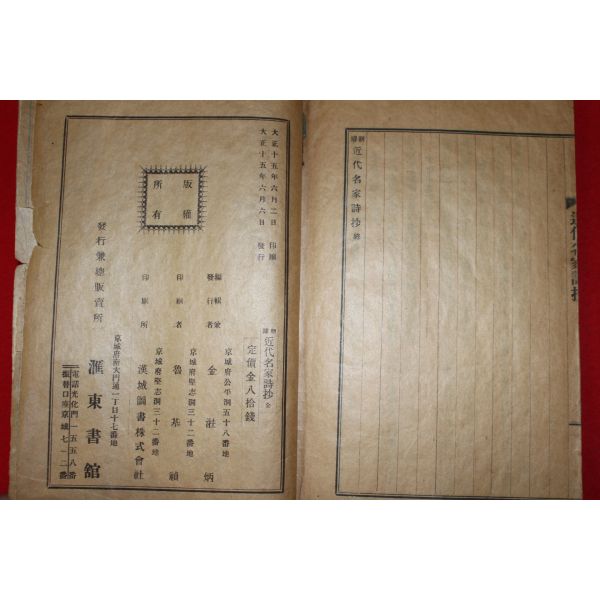 近代名家詩抄 終
近代名家詩抄
大正十五年六月二日 印刷
大正十五年六月六日 發行
版權
所有
近代名家詩抄 全
定價金八拾錢
京城府公平洞五十八番地
編輯兼
發行者 金
炳
京城府堅志洞三十二番地
印刷者 魯基禎
京城府堅志洞三十二番地
印刷所 漢城圖書株式會社
發行兼總販賣所
京城府南大門通一丁目十七番地
滙東書舘
電話光化門一五五八番
振替口座京城七一二番